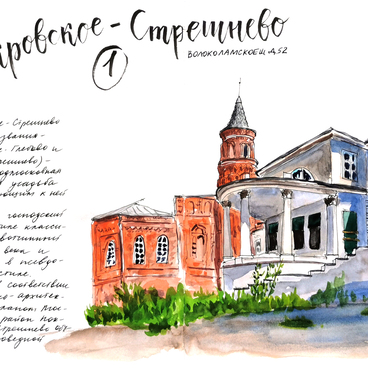 ровское-Стрешнево
1
ВОЛОКОЛАМСКОЕ Ш. Д.52
е-Стрешнево
звания-
е-Глебово и
решнево)-
подмосковная
усадьба
к ней
господский
тиле класси-
вотчинный
века и
в псевдо-
стиле.
В соответствии
о-архитек-
планом, Мос-
район Пок-
Стрешнево
оведной